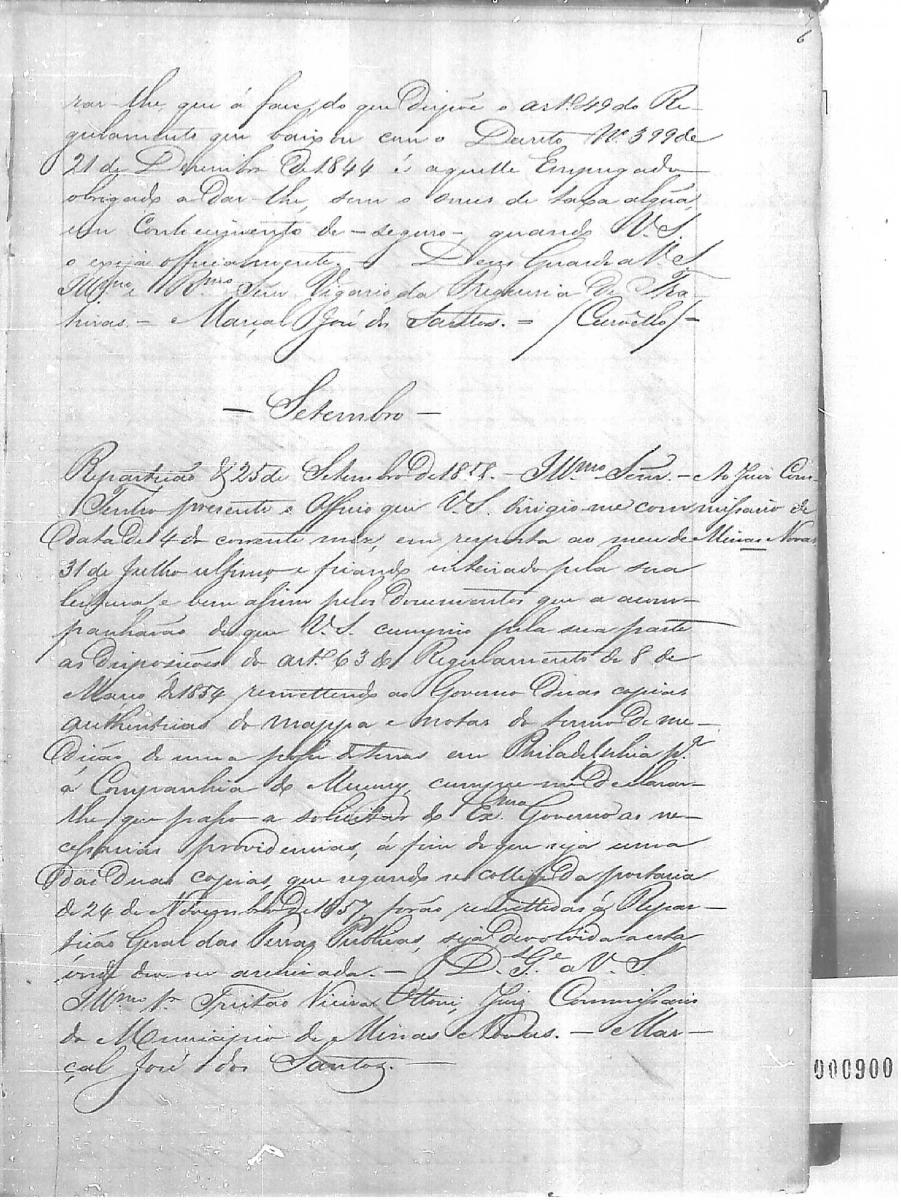 6
rar-lhe, que á face do que dispõe o art.º 49 do Re-
gulamento que baixou com o Decreto N.º 399 de
21 de Dezembro de 1844 é aquelle Empregado
obrigado a dar-lhe, sem o onus de taxa algũa,
um Conhecimento de - seguro - quando V. S.
o exija officialmente. - Deos Guarde a V. S.
Illmo e Rmo Señr Vigario da Freguesia de Tra-
hiras. - Marçal José dos Santos. - /Curvello/ -
- Setembro -
Repartição & 25 de Setembro de 1858. - Illmo Señr. -
Ao Juiz Com-
missario de
Minas Novas
Tenho presente o Officio que V. S. dirigio-me com
data de 4 do corrente mez, em resposta ao meu de
31 de Julho ultimo, e ficando inteirado pela sua
leitura e bem assim pelos documentos que a acom-
panharão de que V. S. cumprio pela sua parte
as disposições do art.º 63 do Regulamento de 8 de
Março de 1854 remettendo ao Governo duas copias
authenticas do mappa e notas do termo de me-
dição de uma posse de terras em Philadelphia p.ª
a Companhia do Mucury, cumpre-me declarar-
lhe, que passo a solicitar do Exmo Governo as ne-
cessarias providencias, á fim de que seja uma
das duas copias, que segundo se collige da portaria
de 24 de Novembro de 1857, forão remettidas á Repar-
tição Geral das Terras Publicas, seja devolvida a esta
onde deve ser archivada. - D. G.e a V. S.
Illmo Sr. Tristão Vieira Ottoni, Juiz Commissario
do Municipio de Minas Novas. - Mar-
çal José dos Santos. -
000900